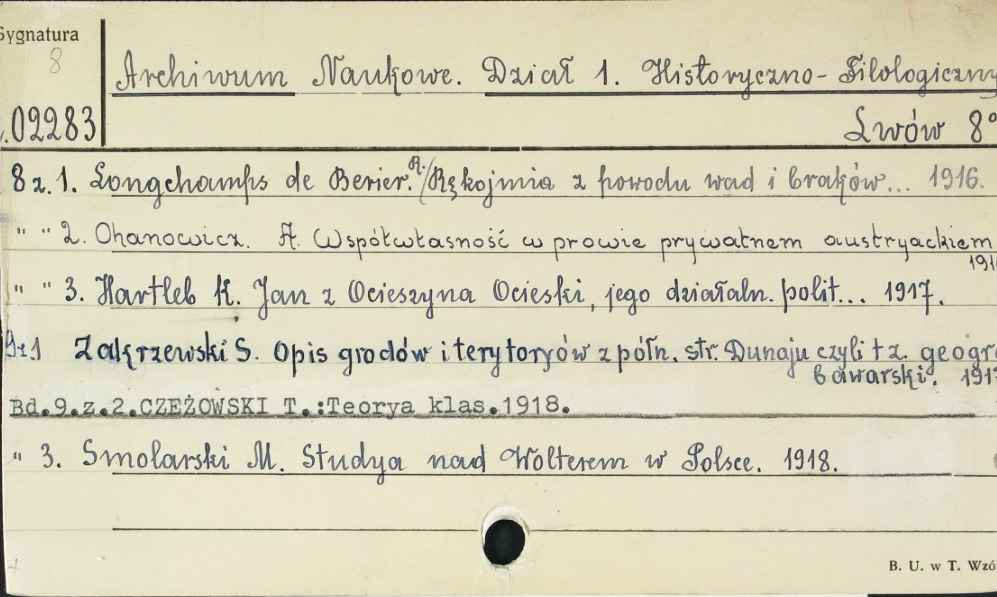 Sygnatura
8
Archiwum Naukowe. Dział 1. Historyczno-Filologiczny
.02283
Lwów 8°
8 z. 1. Longchamps de Berier. R./Rękojmia z powodu wad i braków... 1916.
" " 2. Ohanowicz. A. Współwłasność w prawie prywatnem austryackiem
191
" " 3. Hartleb K. Jan z Ocieszyna Ocieski, jego działaln. polit... 1917.
9 z 1 Zakrzewski S. Opis grodów i terytoryów z półn. str. Dunaju czyli t z. geogra
bawarski. 191
Bd.9.z.2.CZEŻOWSKI T.:Teorya klas.1918.
" 3. Smolarski M. Studya nad Wolterem w Polsce. 1918.
B. U. w T. Wzó